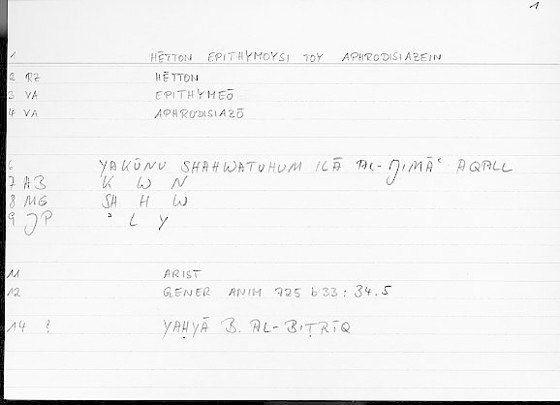 1
1 HĒTTON EPITHYMOYSI TOY APHRODISIAZEIN
2 RZ HĒTTON
3 VA EPITHYMEŌ
4 VA APHRODISIAZŌ
6 YAKŪNU SHAHWATUHUM ILĀ AL-ĴIMĀʿ AQALL
7 AB K W N
8 MG SH H W
9 JP ʾ L Y
11 ARIST
12 GENER ANIM 725 b 33 : 34.5
14 ! YAḤYĀ B. AL-BIṬRĪQ